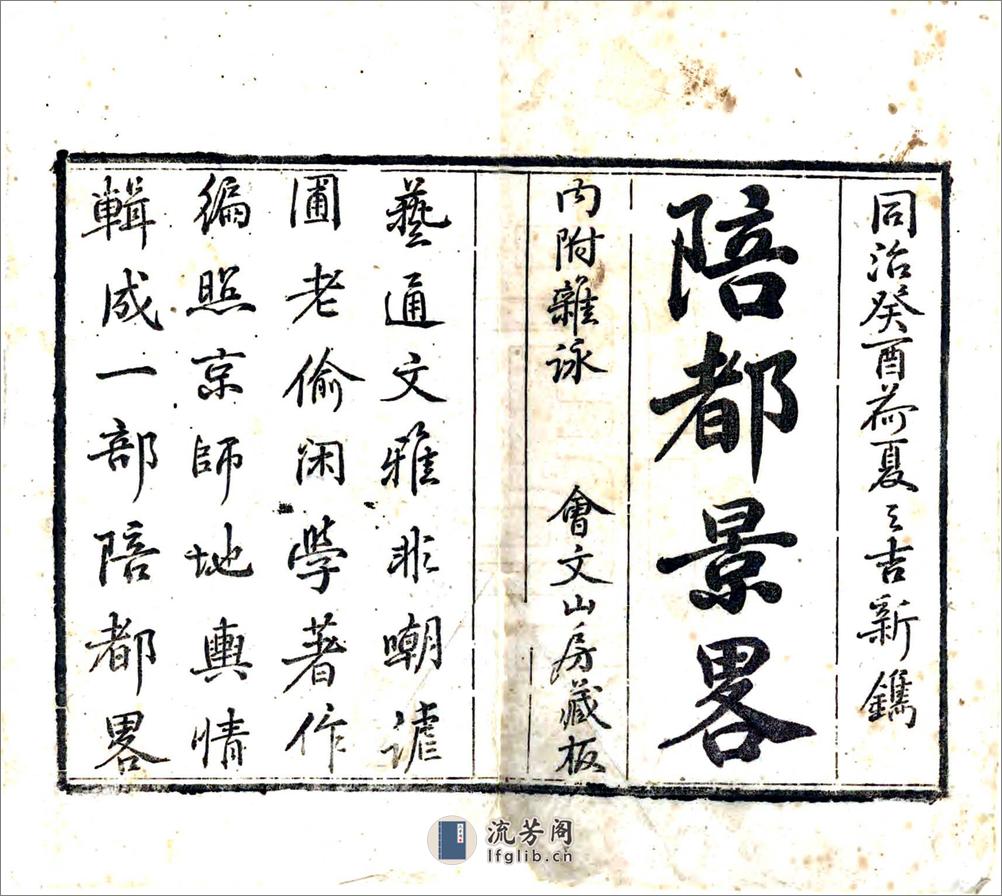 同治癸酉荷夏之吉新鐫
陪都景畧
內附雜詠　會文山房藏板
藝通文雅非嘲謔
圃老偷閑學著作
編照京師地輿情
輯成一部陪都畧
流芳阁
lfglib.cn